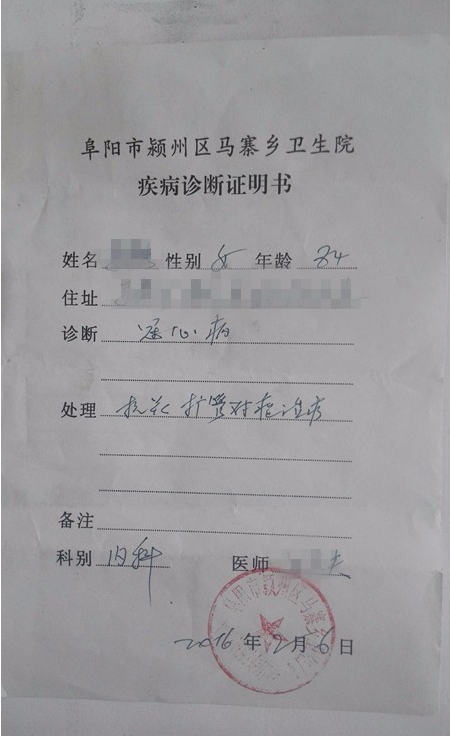 阜阳市颍州区马寨乡卫生院
疾病诊断证明书
姓名 性别 女 年龄 84
住址
诊断 冠心病
处理 抗炎 扩管对症治疗
备注
科别 内科 医师
阜阳市颍州区马寨
2016年2月6日